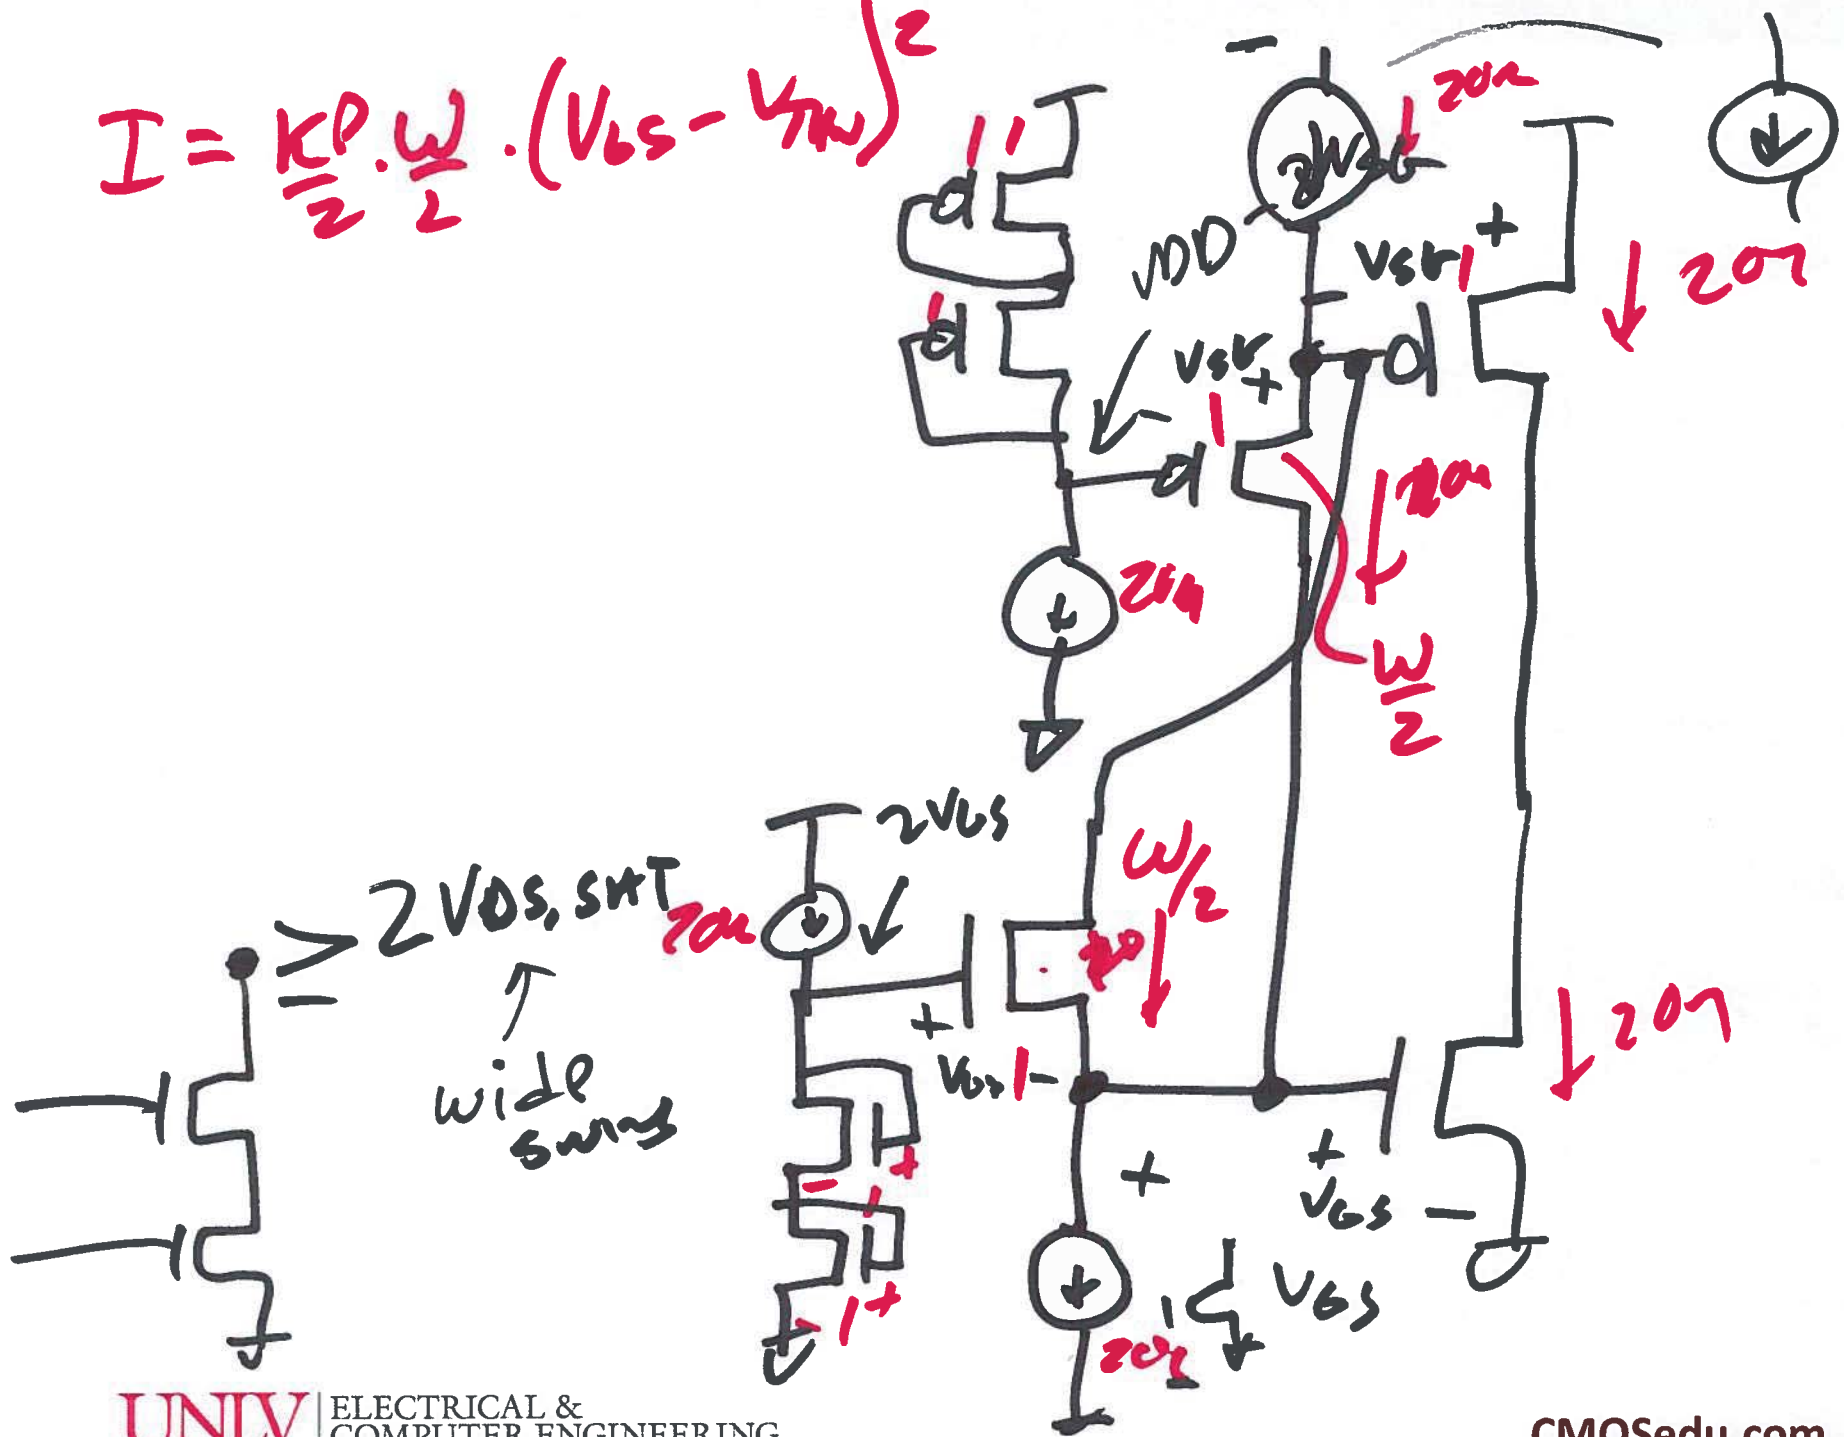 I = KP/2 · W/L · (VGS - VTHN)²
20u
VSG
+
20u
VDD
VSG
+
-
20u
20u
W/2
2VGS
W/2
≥ 2VDS,SAT
20u
wide
swing
+
VGS -
20
20u
+
+
VGS -
VGS
20u
UNLV
ELECTRICAL &
COMPUTER ENGINEERING
CMOSedu.com